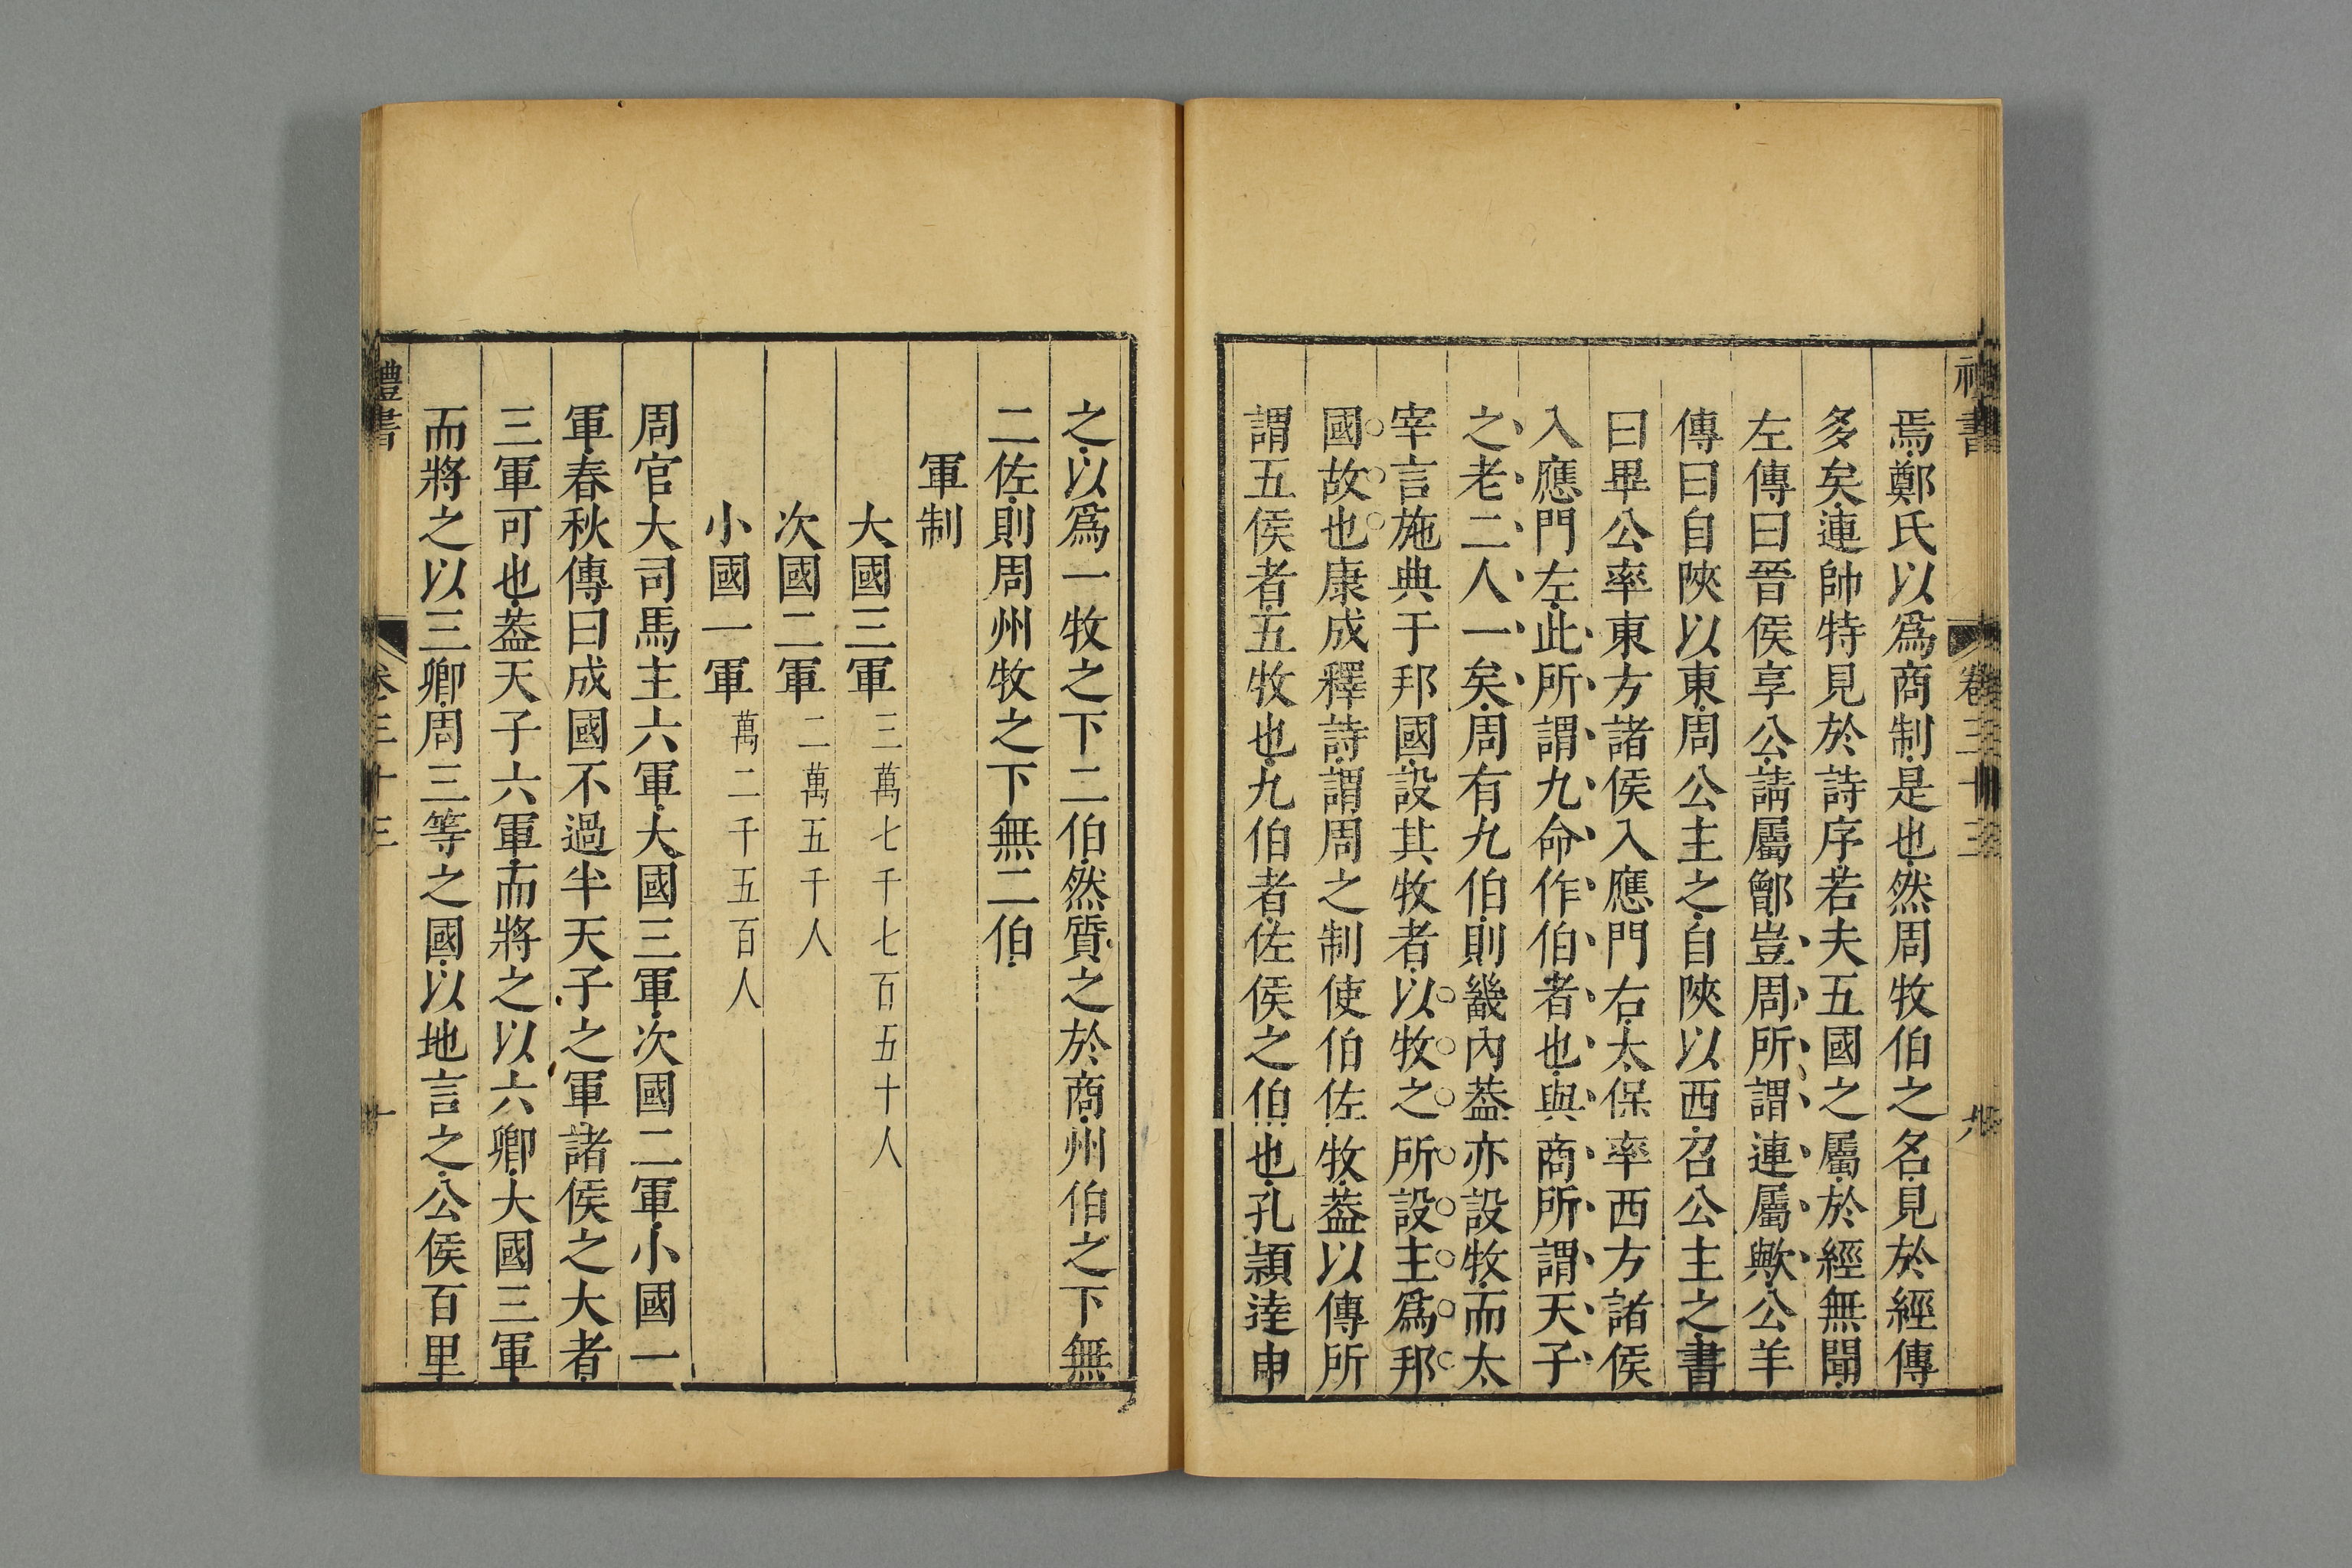 禮書
卷三十三
九
焉鄭氏以爲商制是也然周牧伯之名見於經傳
多矣連帥特見於詩序若夫五國之屬於經無聞
左傳曰晉侯享公請屬鄫豈周所謂連屬歟公羊
傳曰自陝以東周公主之自陝以西召公主之書
曰畢公率東方諸侯入應門右太保率西方諸侯
入應門左此所謂九命作伯者也與商所謂天子
之老二人一矣周有九伯則畿內葢亦設牧而太
宰言施典于邦國設其牧者以牧之所設主爲邦
國故也康成釋詩謂周之制使伯佐牧葢以傳所
謂五侯者五牧也九伯者佐侯之伯也孔穎逹申
之以爲一牧之下二伯然質之於商州伯之下無
二佐則周州牧之下無二伯
軍制
大國三軍三萬七千七百五十人
次國二軍二萬五千人
小國一軍萬二千五百人
周官大司馬主六軍大國三軍次國二軍小國一
軍春秋傳曰成國不過半天子之軍諸侯之大者
三軍可也葢天子六軍而將之以六卿大國三軍
而將之以三卿周三等之國以地言之公侯百里
禮書
卷三十三
十